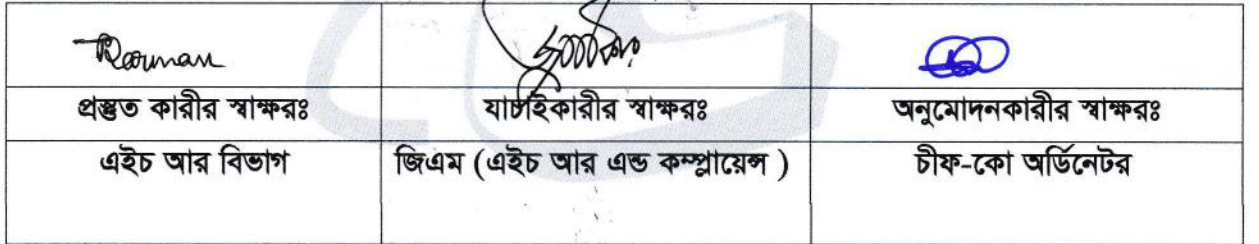 প্রস্তুত কারীর স্বাক্ষরঃ যাচাইকারীর স্বাক্ষরঃ অনুমোদনকারীর স্বাক্ষরঃ
এইচ আর বিভাগ জিএম (এইচ আর এন্ড কমপ্লায়েন্স ) চীফ-কো অর্ডিনেটর